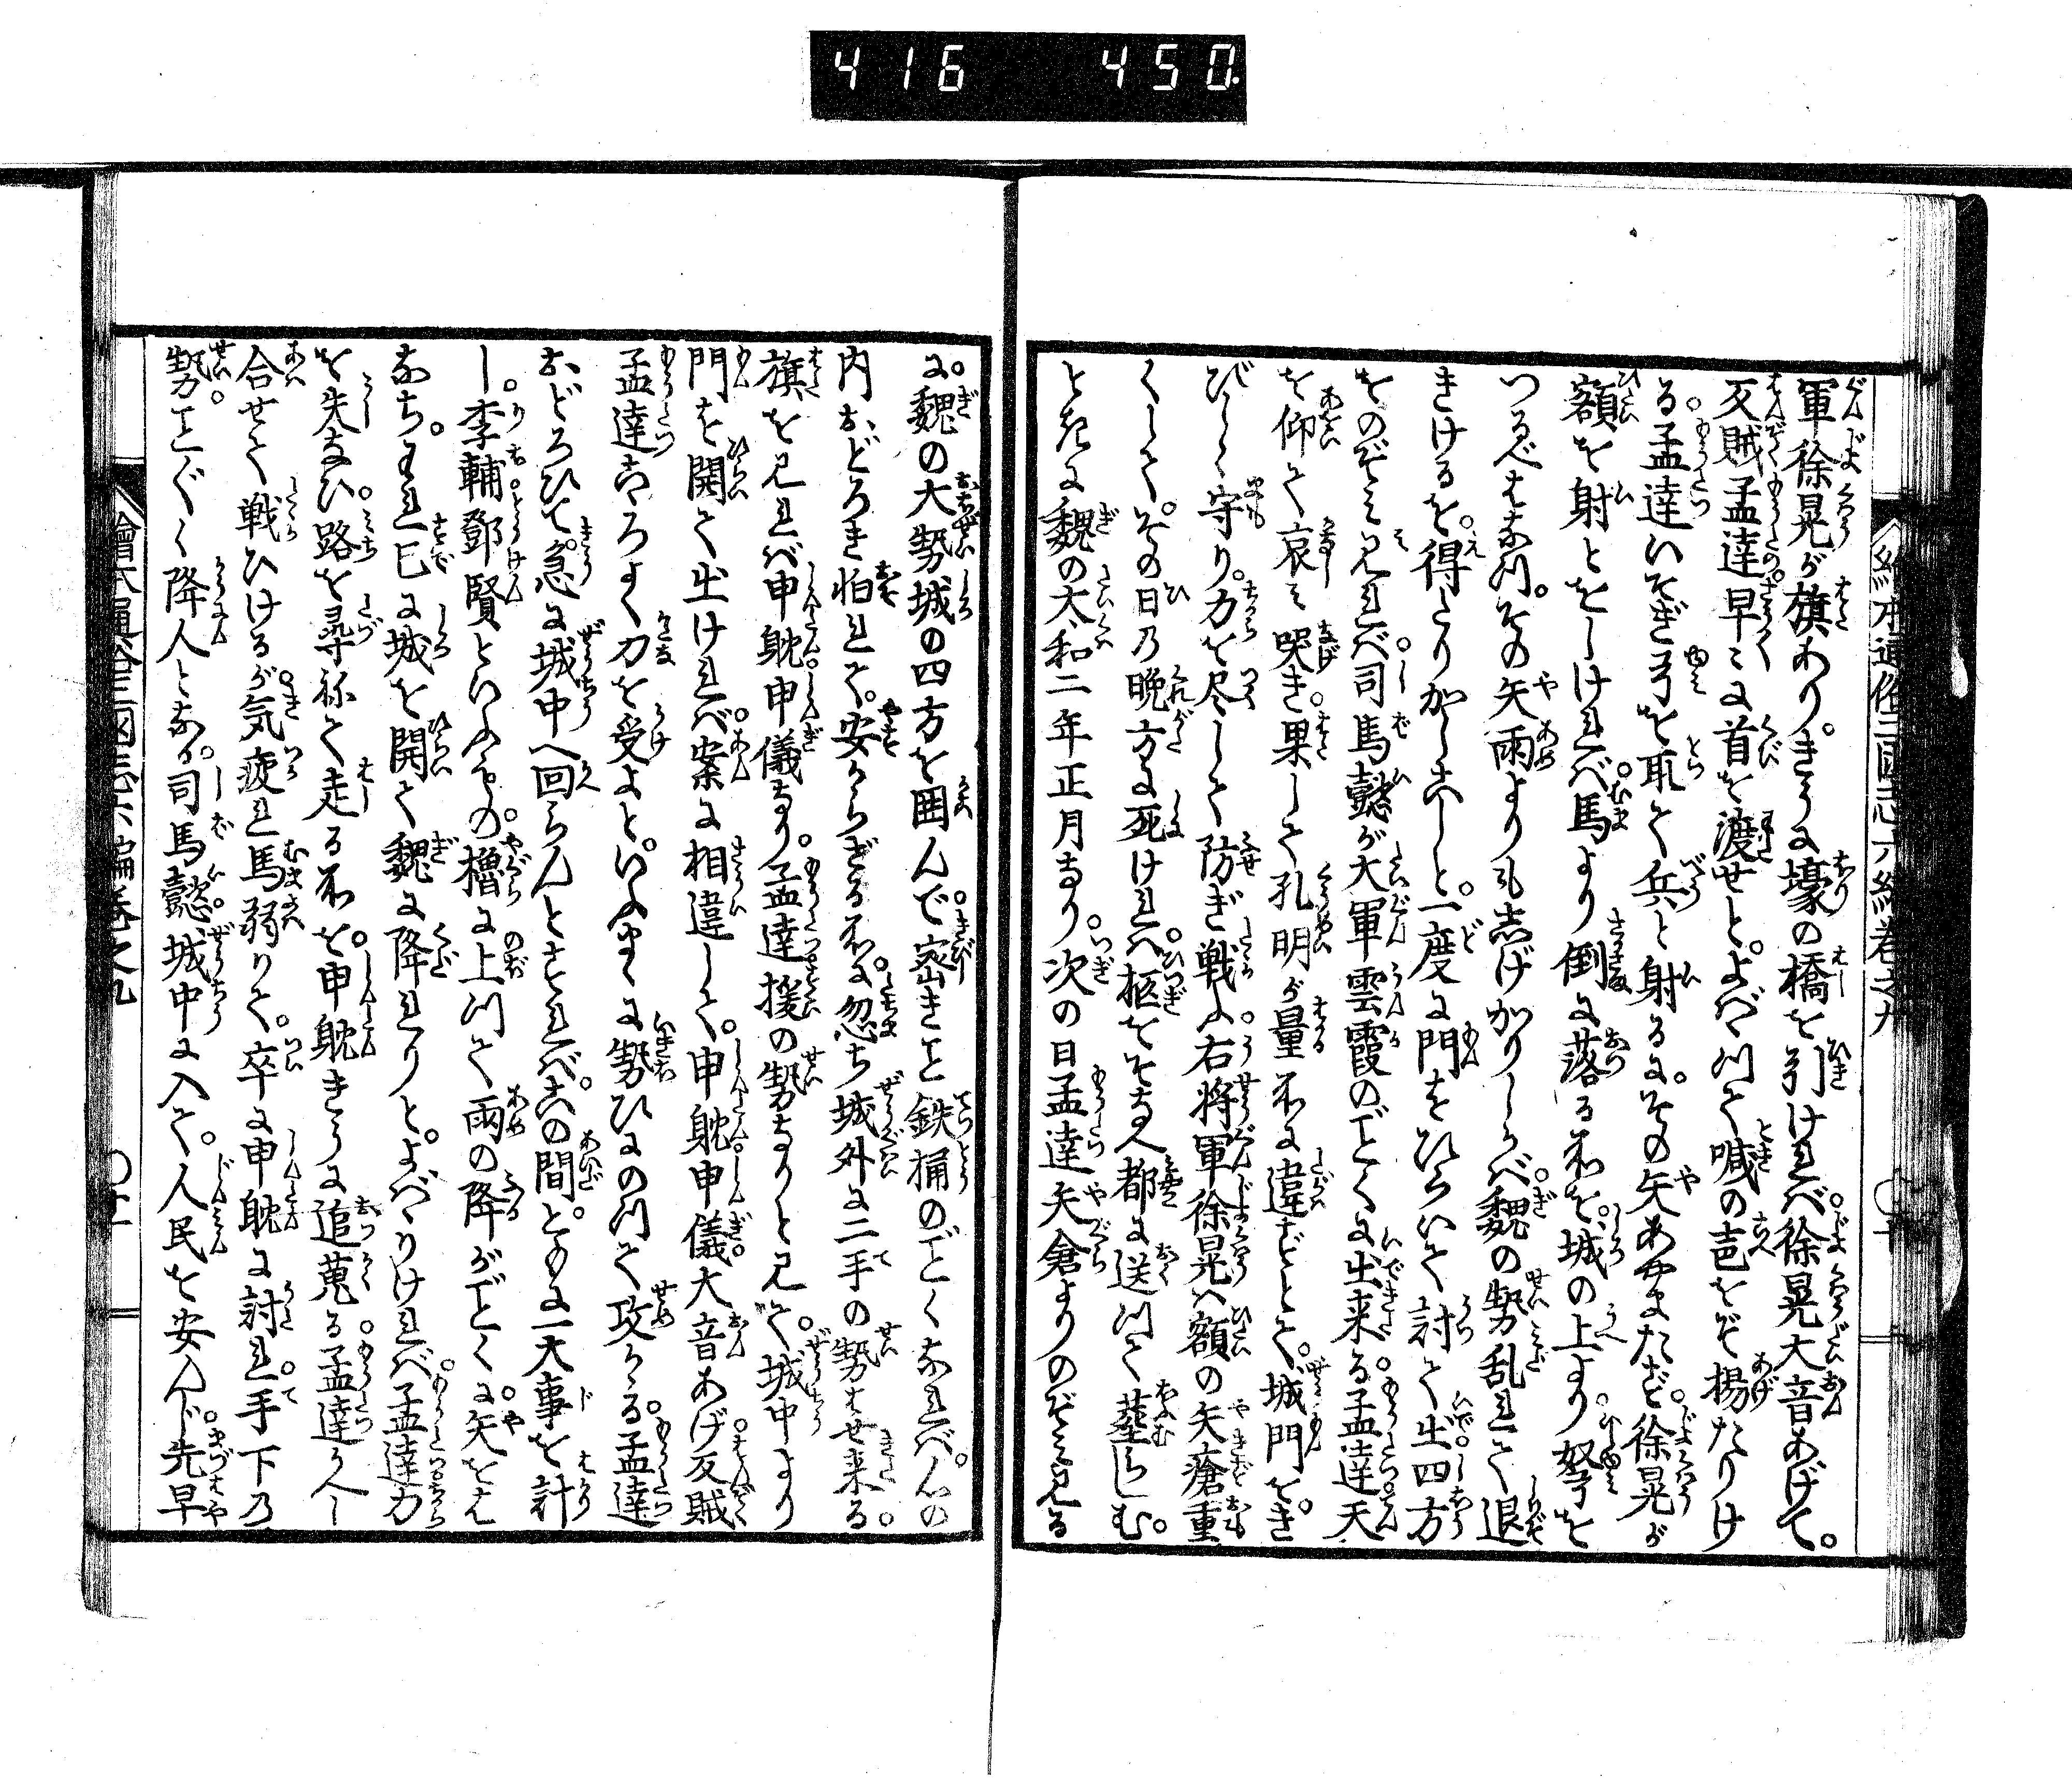 416 450.
絵本通俗三国志六編巻之九
軍徐晃が旗あり。きうに壕の橋を引ければ。徐晃大音あげて。
反賊孟達早々に首を渡せと。よばゝつて喊の声をぞ揚たりけ
る。孟達いそぎ弓を取て兵と射るに。その矢あやまたず。徐晃が
額を射とをしければ。馬より倒に落る所を。城の上より弩を
つるべはなつ。その矢雨よりも志げかりしかば。魏の勢乱れて退
きけるを。得たりかしこしと。一度に門をひらいて討て出四方
をのぞみ見れば。司馬懿が大軍雲霞のごとくに出来る。孟達天
を仰て哀み哭き。果して孔明が量所に違ずとて。城門をき
びしく守り。力を尽して防ぎ戦ふ。右将軍徐晃ハ額の矢瘡重
くして。その日乃晩方に死ければ。柩をそなへ都に送つて葬らしむ。
ときに魏の大和二年正月なり。次の日孟達矢倉よりのぞみ見る
に。魏の大勢城の四方を囲んで。密きこと鉄桶のごとくなれば。心の
内おどろき怕れて。安からざる所に。忽ち城外に二手の勢はせ来る。
旗を見れば申耽申儀なり。孟達援の勢なりと見て。城中より
門を開て出ければ。案に相違して。申耽申儀大音あげ反賊
孟達こゝろよく刀を受よと。いふまゝに勢ひにのつて攻かゝる。孟達
おどろひて。急に城中へ回らんとすれば。この間。ともに一大事を計
し。李輔鄧賢といふもの。櫓に上つて雨の降がごとくに。矢をは
なち。われ已に城を開て魏に降れりと。よばゝりければ。孟達力
を失なひ。路を尋ねて走る所を。申耽きうに追蒐る。孟達かへし
合せて戦ひけるが。気疲れ馬弱りて。卒に申耽に討れ。手下乃
勢。ことごとく降人となる。司馬懿。城中に入て。人民を安んじ。先早
絵本通俗三国志六編巻之九